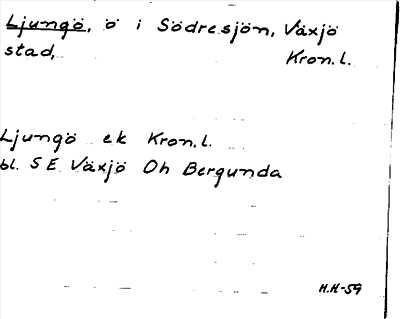 Ljungö, ö i Södresjön, Växjö
stad, Kron. l.
Ljungö ek Kron. l.
bl. S E Växjö Oh Bergunda
H.H-59